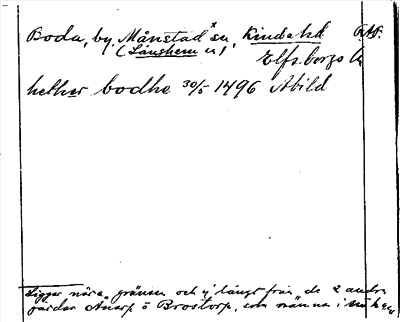 Boda, by, Månstad sn, Kinds hd
(Länghem sn) Elfsborgs l.
hether bodhe 30/5 1496 Abild
Ligger nära gränsen och ej långt från de 2 andra
gårdar Ånarp o Brostorp, som nämna i